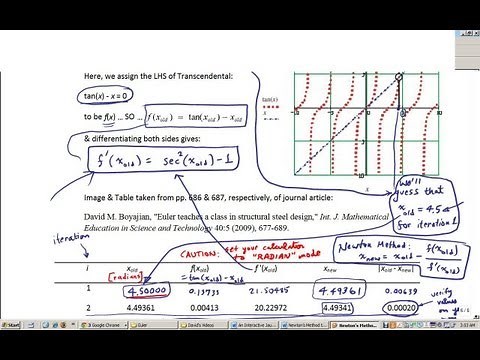 Here, we assign the LHS of Transcendental:
tan(x) - x = 0
to be f(x) ... SO ... f(x_old) = tan(x_old) - x_old
& differentiating both sides gives:
f'(x_old) = sec²(x_old) - 1
tan(x)
x
x
we'll
guess that
x_old = 4.5
for iteration 1
Image & Table taken from pp. 686 & 687, respectively, of journal article:
David M. Boyajian, "Euler teaches a class in structural steel design," Int. J. Mathematical
Education in Science and Technology 40:5 (2009), 677-689.
Newton Method:
x_new = x_old - f(x_old) / f'(x_old)
iteration
CAUTION: set your calculator
to "RADIAN" mode
i x_old f(x_old) f'(x_old) x_new |x_old - x_new|
[radians] = tan(x_old) - x_old
1 4.50000 0.13733 21.50485 4.49361 0.00639
2 4.49361 0.00413 20.22972 4.49341 0.00020
verify
values
on
Start
3 Google Chrome
Euler
David's Adeop
An Interactive Journ
Newton's Method I
Newton's Metho
3:03 AM